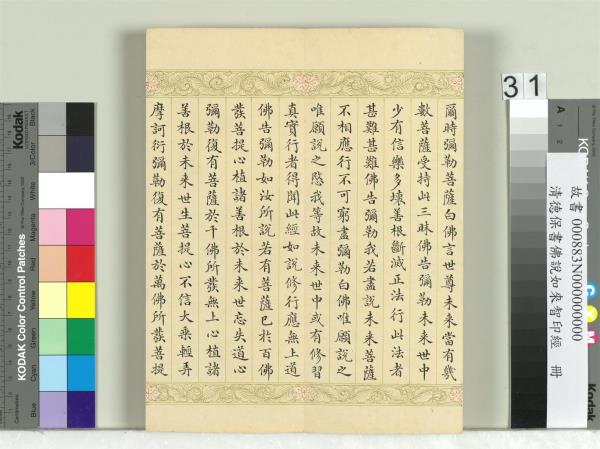 爾時彌勒菩薩白佛言世尊未來當有幾
數菩薩受持此三昧佛告彌勒未來世中
少有信樂多壞善根斷滅正法行此法者
甚難甚難佛告彌勒我若盡說未來菩薩
不相應行不可窮盡彌勒白佛唯願說之
唯願說之愍我等故未來世中或有修習
真實行者得聞此經如說修行應無上道
佛告彌勒如汝所說若有菩薩已於百佛
發菩提心植諸善根於未來世忘失道心
彌勒復有菩薩於千佛所發無上心植諸
善根於未來世生菩提心不信大乘輕弄
摩訶衍彌勒復有菩薩於萬佛所發菩提
31
故書 000883N000000000
清德保書佛說如來智印經 冊
KODAK Color Control Patches
Kodak
Blue
Cyan
Green
Yellow
Red
Magenta
White
3/Color
Black
A
1
2
C
Y
M